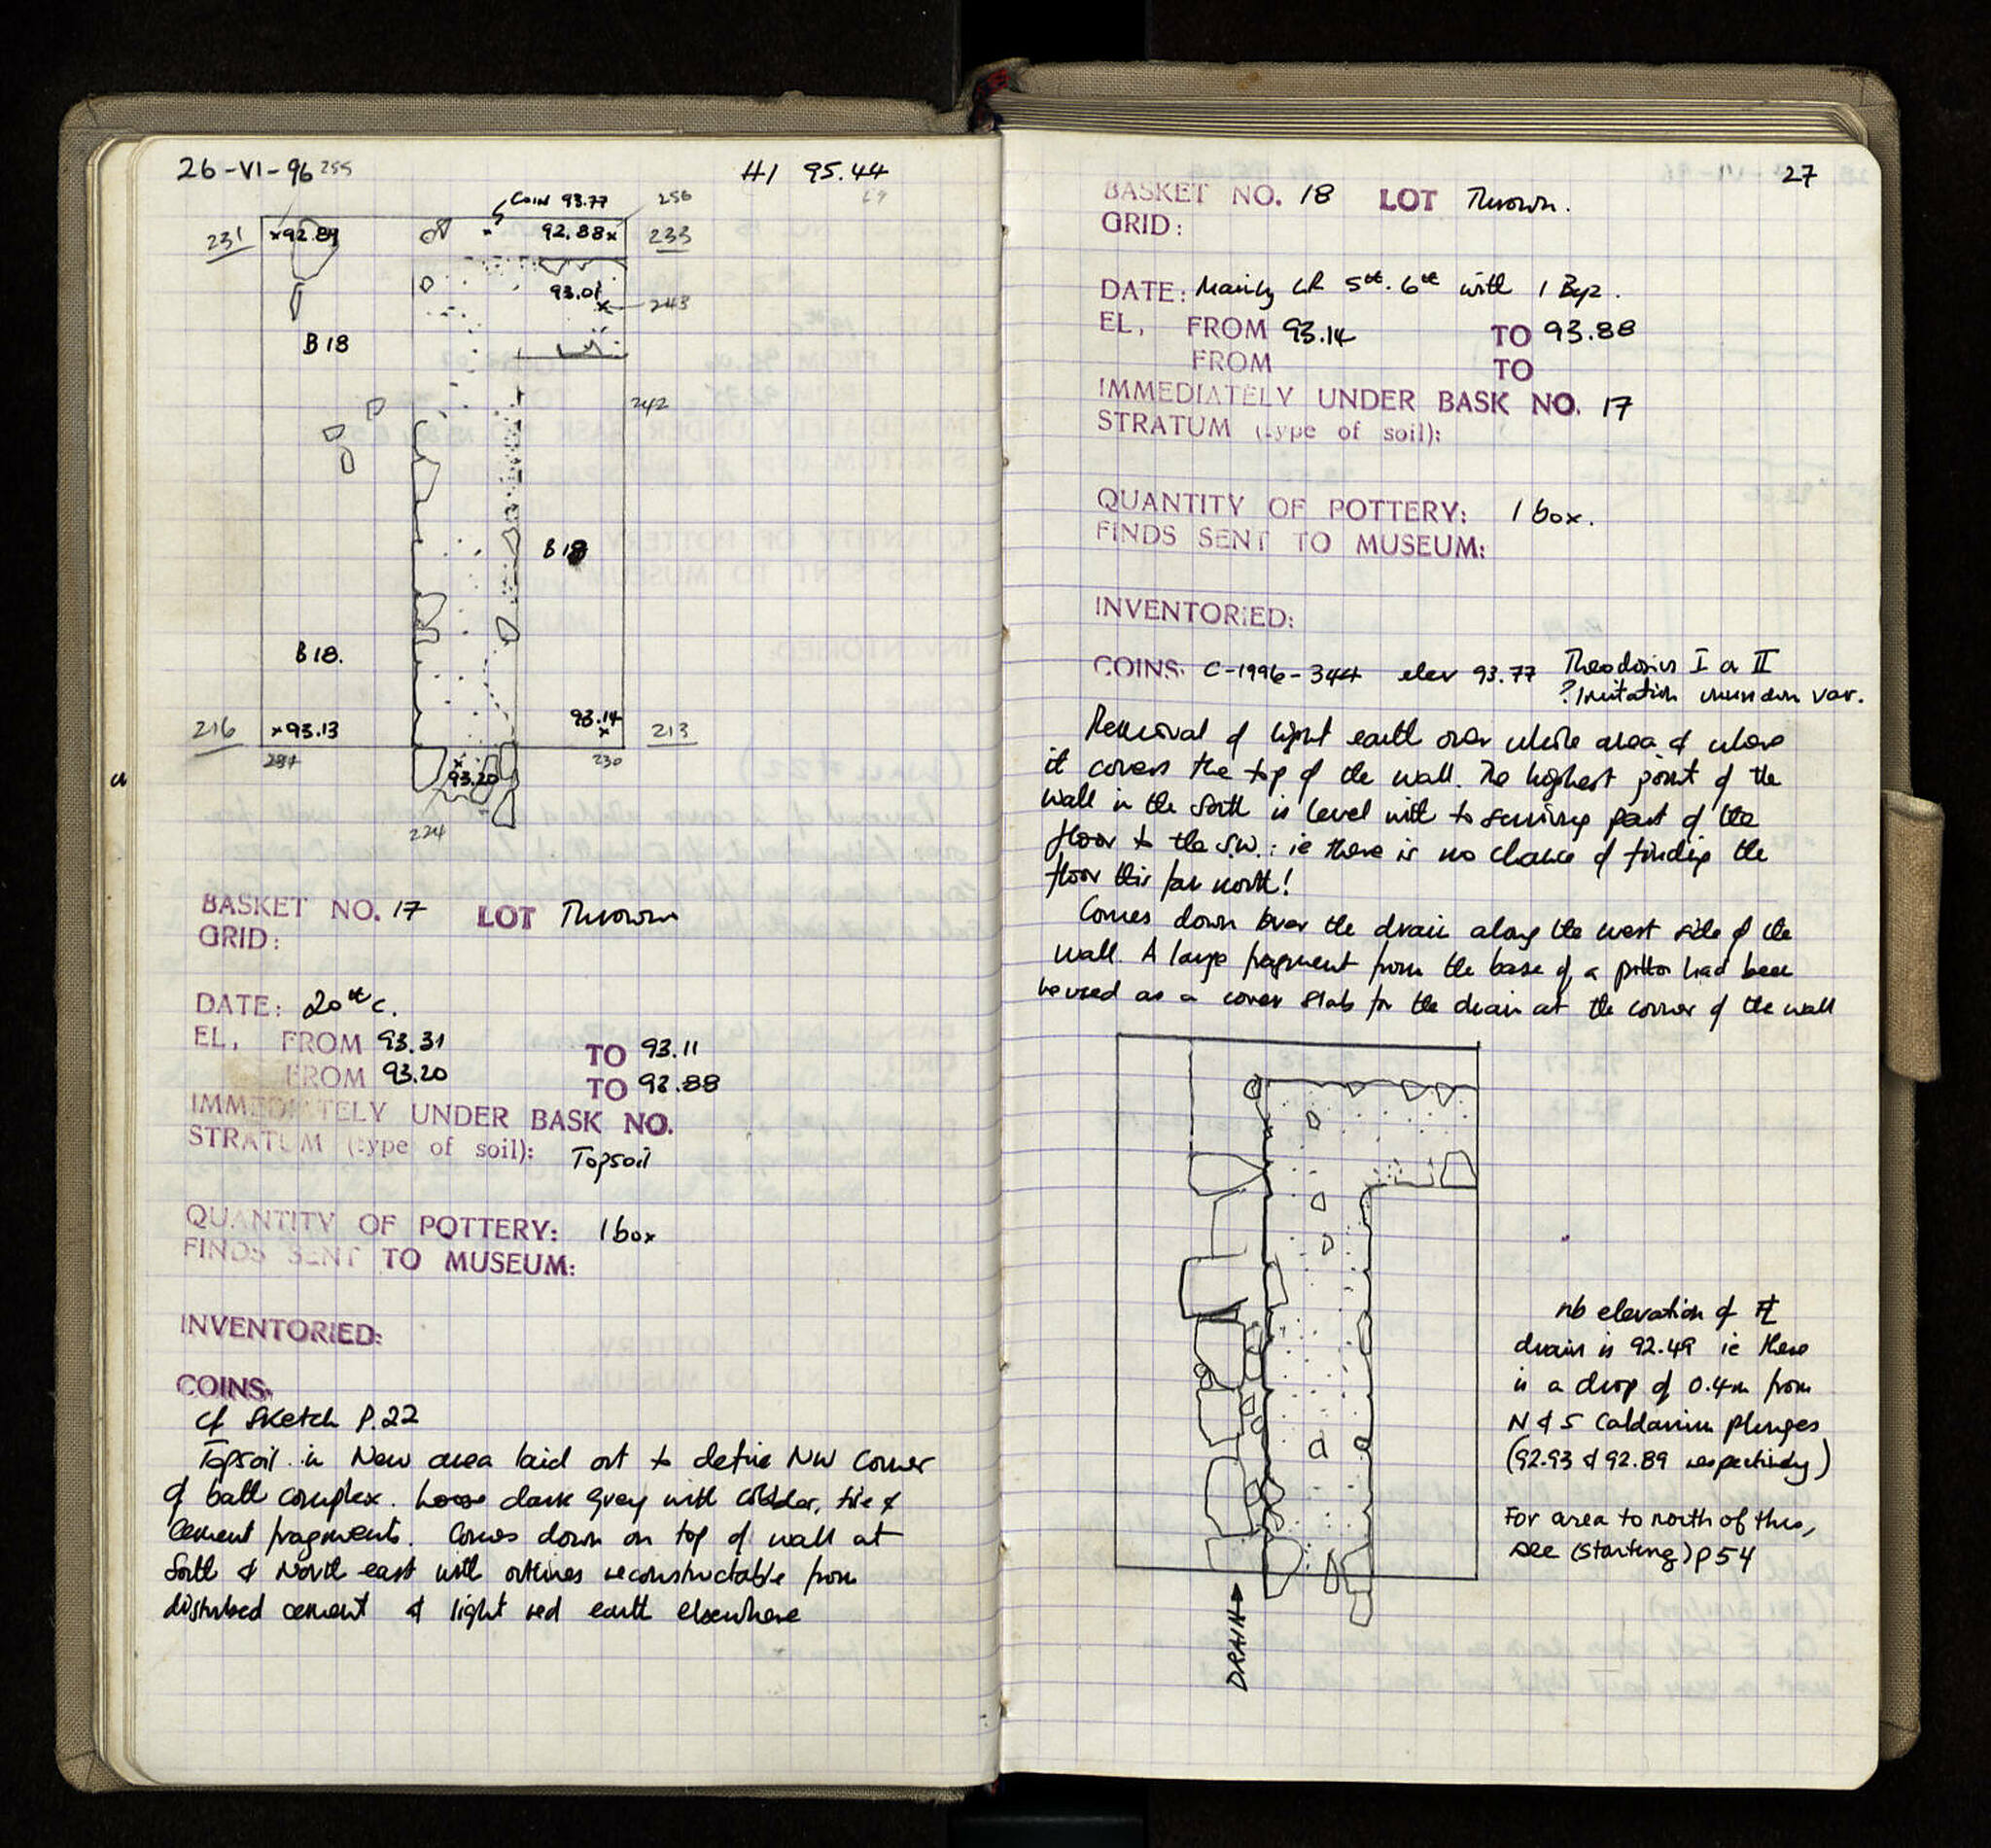 26-VI-96 255
HI 95.44
69
Coin 93.77
256
231 ×92.89
92.88× 233
93.01
× 243
B 18
242
B 18
B 18.
216 ×93.13
93.14
× 213
231
230
×
93.20
224
BASKET NO. 17 LOT Thrown
GRID:
DATE: 20th c.
EL, FROM 93.31 TO 93.11
FROM 93.20 TO 92.88
IMMEDIATELY UNDER BASK NO.
STRATUM (type of soil): Topsoil
QUANTITY OF POTTERY: 1 box
FINDS SENT TO MUSEUM:
INVENTORIED:
COINS.
cf sketch P.22
Topsoil in New area laid out to define NW Corner
of bath complex. Loose dark grey with cobbles, tile &
cement fragments. Comes down on top of wall at
South & North east with outlines reconstructable from
disturbed cement & light red earth elsewhere
27
BASKET NO. 18 LOT Thrown.
GRID:
DATE: Mainly LR 5th. 6th with 1 Byz.
EL, FROM 93.14 TO 93.88
FROM TO
IMMEDIATELY UNDER BASK NO. 17
STRATUM (type of soil):
QUANTITY OF POTTERY: 1 box.
FINDS SENT TO MUSEUM:
INVENTORIED:
COINS. C-1996-344 elev 93.77 Theodosius I or II
? Imitation unknown var.
Removal of light earth over whole area & where
it covers the top of the wall. The highest point of the
wall in the South is level with to surviving part of the
floor to the S.W.: ie there is no chance of finding the
floor this far north!
Comes down over the drain along the west side of the
wall. A large fragment from the base of a pithos had been
reused as a cover slab for the drain at the corner of the wall
nb elevation of
drain is 92.49 ie there
is a drop of 0.4m from
N & S Caldarium plunges
(92.93 & 92.89 respectively)
For area to north of this,
see (starting) p 54
DRAIN →